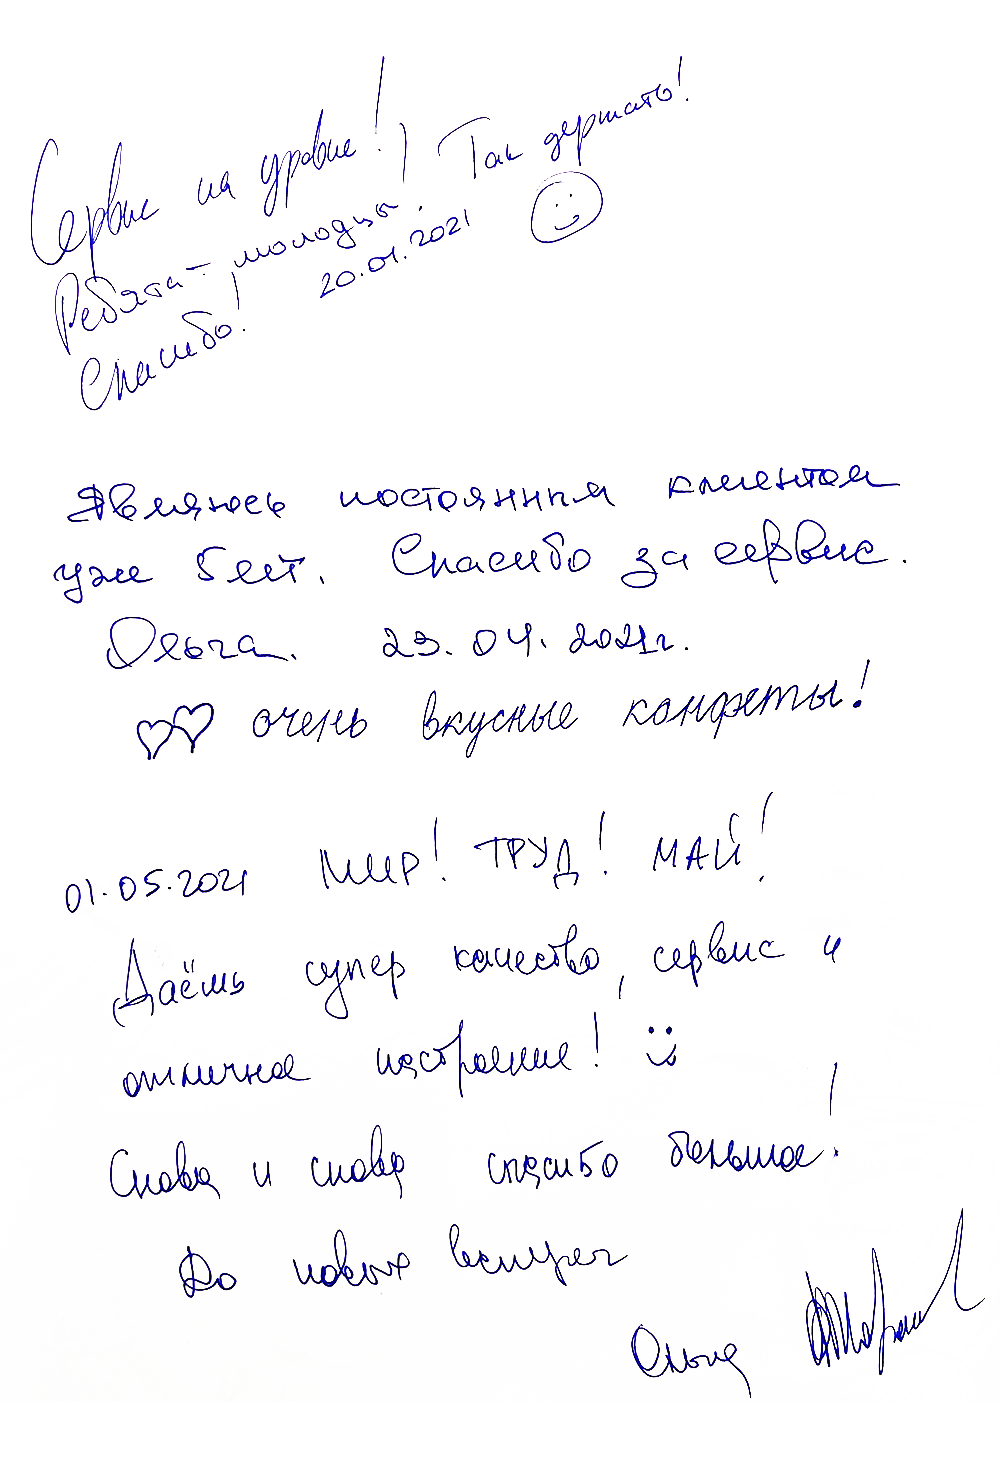 Сервис на уровне!
Ребята - молодцы! Так держать!
Спасибо! 20.01.2021
Являюсь постоянным клиентом
уже 5 лет. Спасибо за сервис.
Ольга. 23.04.2021г.
очень вкусные конфеты!
01.05.2021 МИР! ТРУД! МАЙ!
Даёшь супер качество, сервис и
отличное настроение!
Снова и снова спасибо большое!
До новых встреч
Ольга